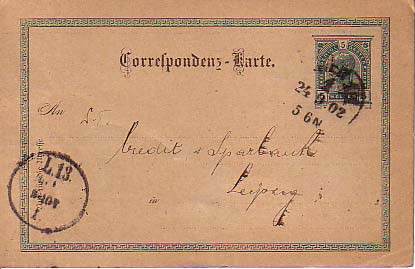 Correspondenz-Karte.
5
24 9 02
5 6N
An
Credit & Sparbank
Leipzig
in
L.13.